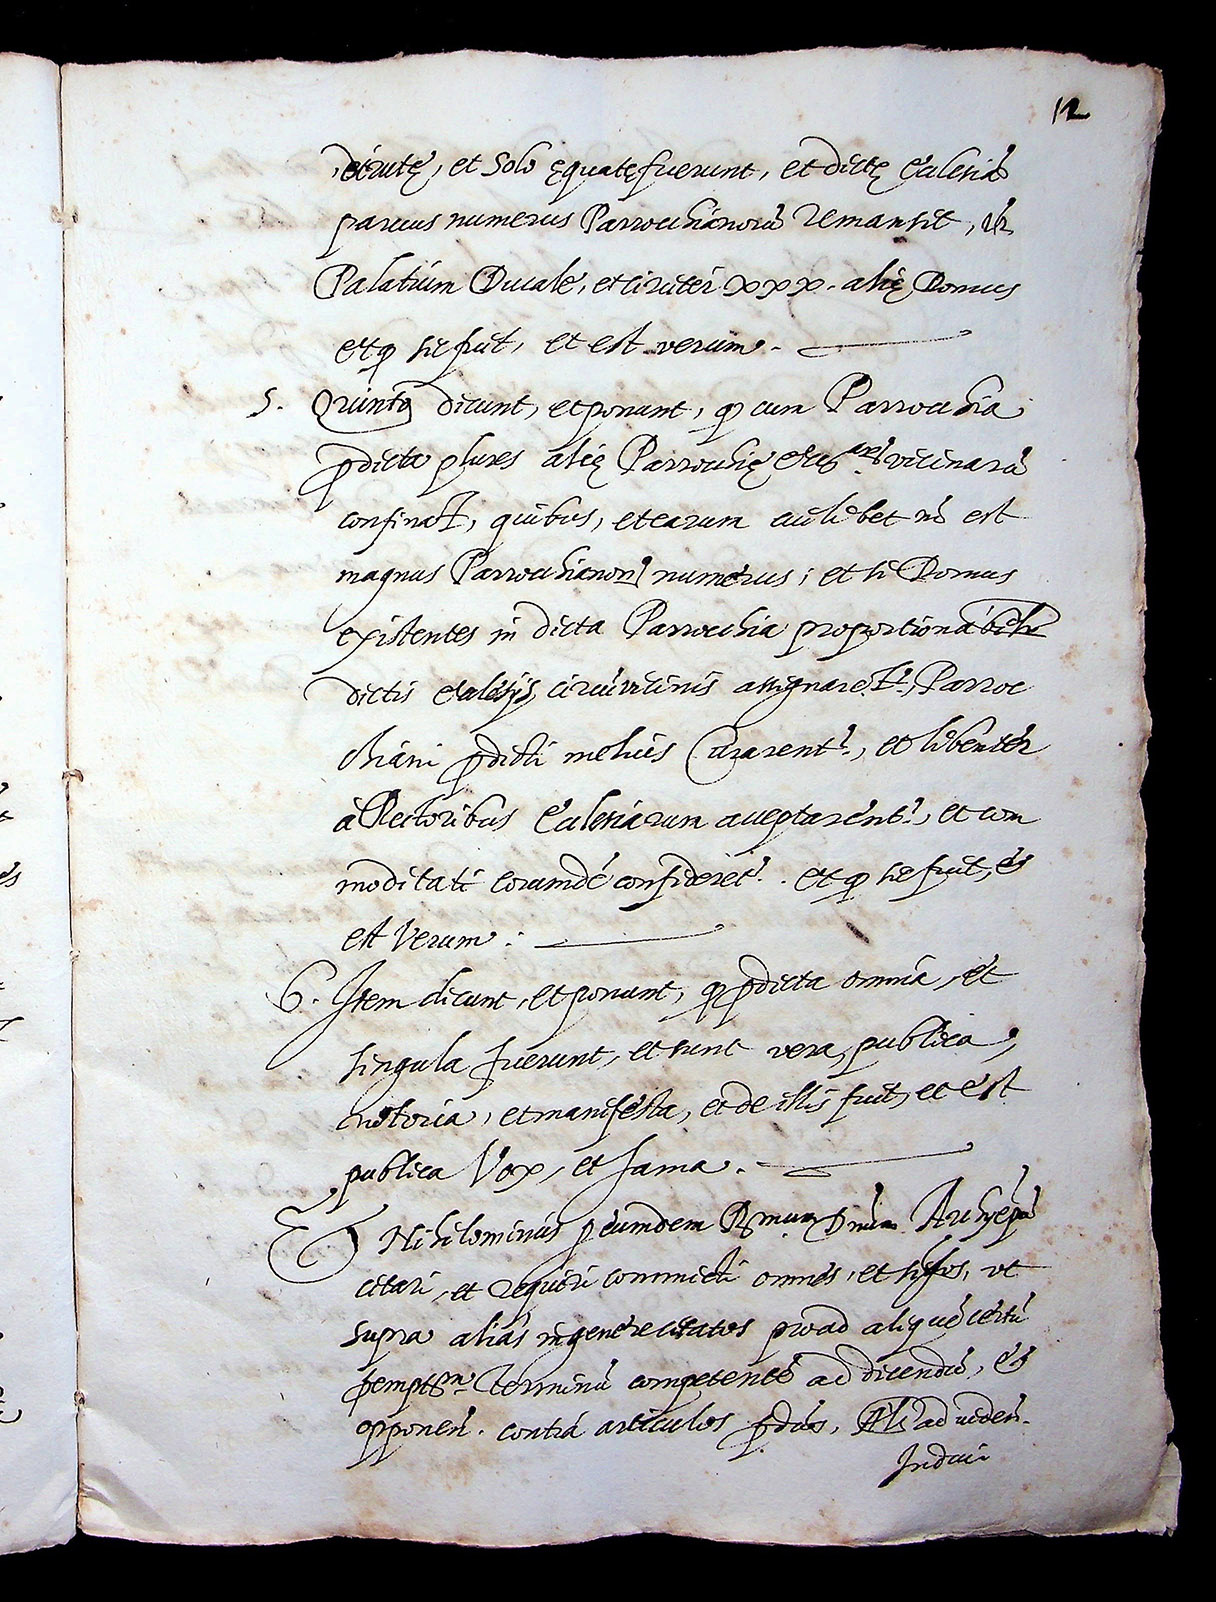 12
dirutę, et solo ęquatę fuerunt, et dictę Ecclesię
paruus numerus Parrochianorū remansit,
Palatium Ducale, et circiter xxx. alię Domus
et q sic fuit, et est verum.
5. Quinto dicunt, et ponunt, q cum Parrochia
pdicta plures alię Parrochię vicinarū
confinat, quibus, et earum cuilibet est
magnus Parrochianorū numerus; et si Domus
existentes in dicta Parrochia proportionabilr
dictis Ecclesijs circūvicinis assignaret.r, Parroc
chiani pdicti melius curarent.r, et libenter
à Rectoribus Ecclesiarum acceptarent.r, et com
moditati eorumdē consideret.r. et q sic fuit, et
est verum:
6. Item dicunt, et ponunt, q pdicta omnia, et
singula fuerunt, et sunt vera, publica,
notoria, et manifesta, et de illis fuit, et est
publica Vox, et fama.
Et Nihilominus p eumdem Rmum Dnum Archiepūm
citari, et requiri committi omnes, et sigłos, ut
supra alias in genere citatos pro ad aliquē certū
pemptm terminū competentē ad dicendū, et
opponen. contra articulos pdtos, Ac ad viden.
Induci